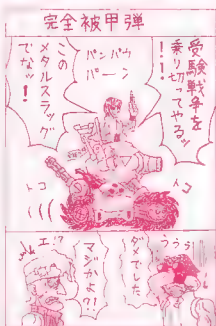 完全被甲弾
受験戦争を
乗り切ってやるッ
!!
パンパウ
パーン
この
メタルスラッグ
でなッ!
トコ
トコ
ううう
ダメでした
マジかよ?!
エ!?